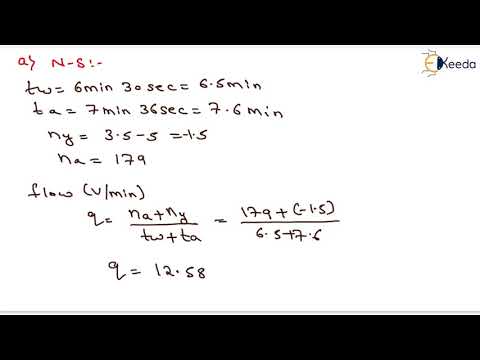 a) N-S:-
Keeda
tw = 6min 30sec = 6.5min
ta = 7min 36sec = 7.6min
ny = 3.5-5 = -1.5
na = 179
flow (V/min)
q = na+ny / tw+ta = 179+(-1.5) / 6.5+7.6
q = 12.58